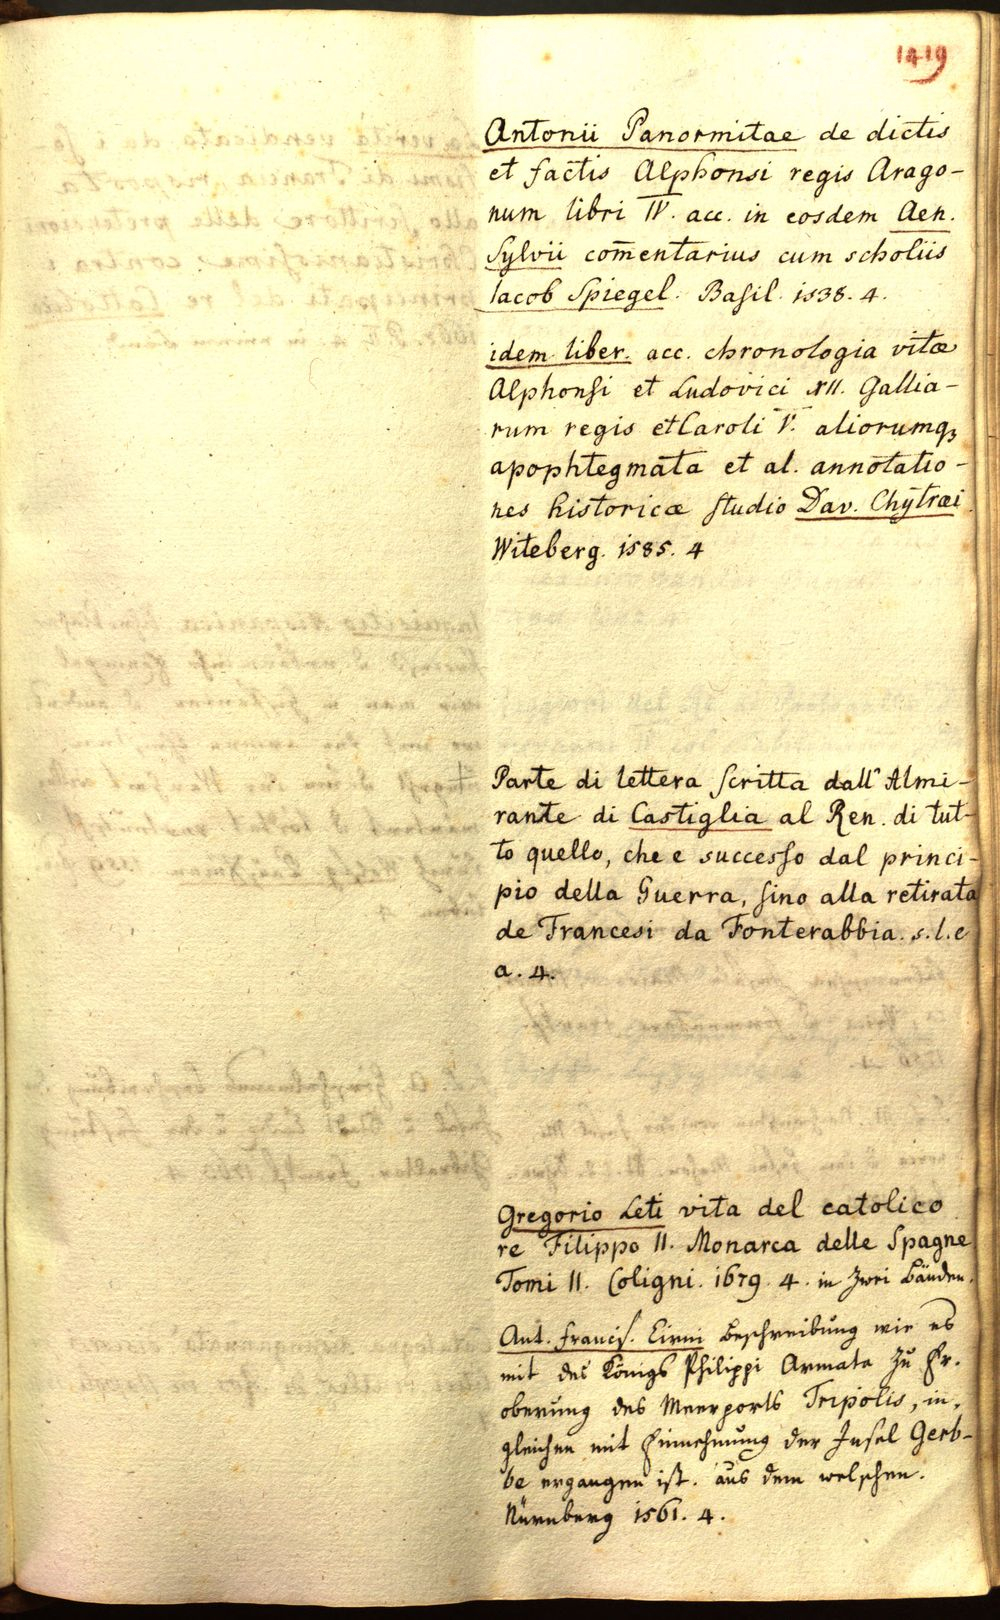 1419
Antonii Panormitae de dictis
et factis Alphonsi regis Arago-
num libri IV. acc. in eosdem Aen.
Sylvii com̄entarius cum scholiis
Iacob Spiegel. Basil. 1538. 4.
idem liber. acc. chronologia vitæ
Alphonsi et Ludovici XII. Gallia-
rum regis et Caroli V. aliorumqꝫ
apophtegmata et al. annotatio-
nes historicæ studio Dav. Chytræi
Witeberg. 1585. 4
Parte di lettera scritta dall' Almi-
rante di Castiglia al Ren. di tut-
to quello, che e successo dal princi-
pio della Guerra, sino alla retirata
de Francesi da Fonterabbia. s. l. e
a. 4.
Gregorio Leti vita del catolico
re Filippo II. Monarca delle Spagne
Tomi II. Coligni. 1679. 4. in zwei Bänden.
Ant. Francis. Cirni Beschreibung wie es
mit des Königs Philippi Armata zu Er-
oberung des Meerports Tripolis, in-
gleichen mit Einnehmung der Insel Gerb-
be ergangen ist. aus dem welschen.
Nürnberg 1561. 4.